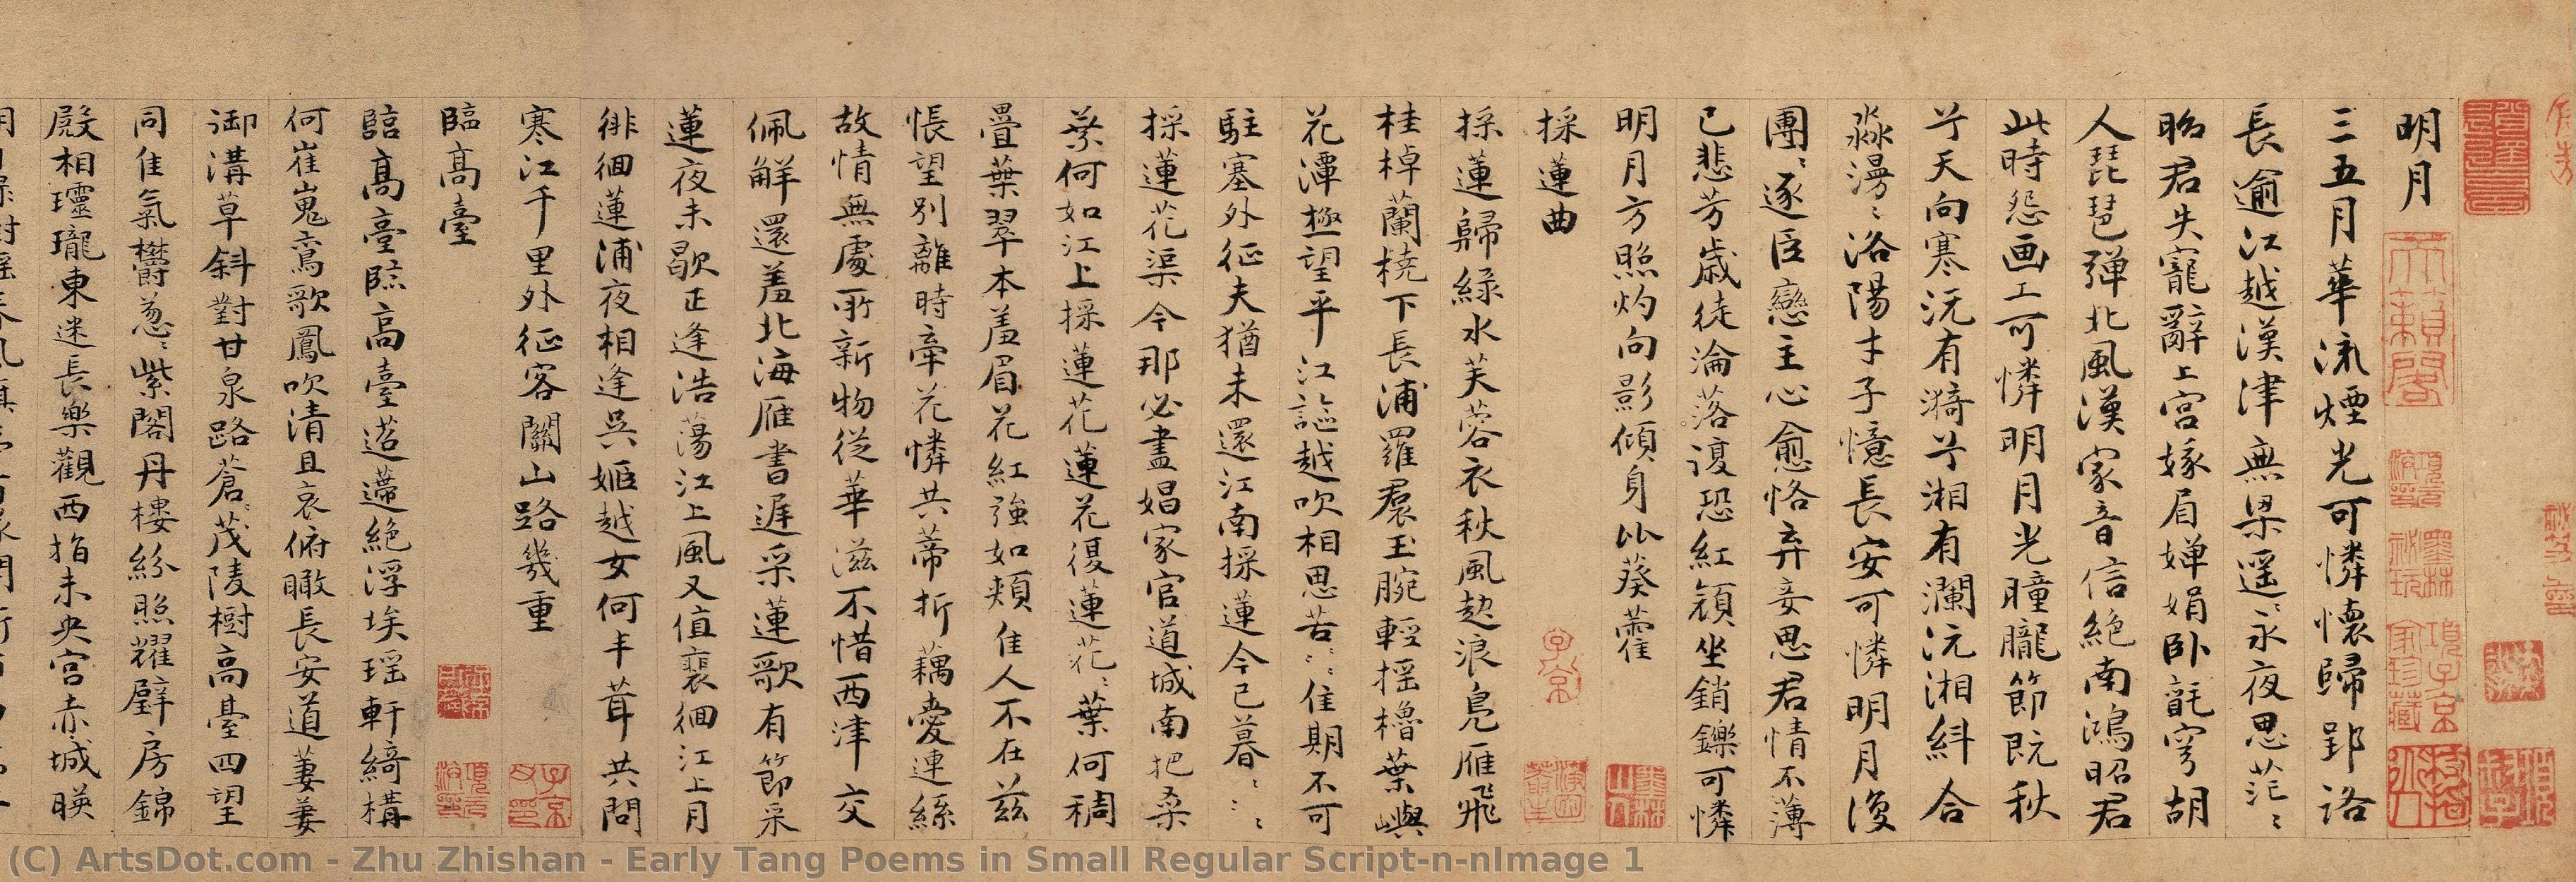 明月
三五月華流煙光可憐懷歸郢路
長逾江越漢津無梁遥〻永夜思茫〻
昭君失寵辭上宮嫁眉嬋娟卧氈穹胡
人琵琶彈北風漢家音信絶南鴻昭君
此時怨画工可憐明月光朣朧節既秋
兮天向寒沅有漪兮湘有瀾沅湘糾合
淼漫〻洛陽才子憶長安可憐明月復
團〻逐臣戀主心愈恪弃妾思君情不薄
已悲芳歲徒淪落復恐紅顔坐銷鑠可憐
明月方照灼向影傾身比葵藿
採蓮曲
採蓮歸緑水芙蓉衣秋風起浪鳧雁飛
桂棹蘭橈下長浦羅裙玉腕輕摇櫓葉嶼
花潭極望平江謳越吹相思苦〻〻佳期不可
駐塞外征夫猶未還江南採蓮今已暮〻〻〻
採蓮花渠今那必盡娼家官道城南把桑
葉何如江上採蓮花蓮花復蓮花〻葉何稠
疊葉翠本羞眉花紅強如頰佳人不在兹
悵望别離時牽花憐共蒂折藕愛連絲
故情無處所新物從華滋不惜西津交
佩解還羞北海雁書遲采蓮歌有節采
蓮夜未歇正逢浩蕩江上風又值裵徊江上月
徘徊蓮浦夜相逢吳姬越女何丰茸共問
寒江千里外征客關山路幾重
臨高臺
臨高臺臨高臺迢遰絶浮埃瑶軒綺構
何崔嵬鸞歌鳳吹清且哀俯瞰長安道萋萋
御溝草斜對甘泉路蒼〻茂陵樹高臺四望
同佳氣鬱葱〻紫閣丹樓紛照耀璧房錦
殿相瓏瓏東迷長樂觀西指未央宮赤城暎
(C) ArtsDot.com - Zhu Zhishan - Early Tang Poems in Small Regular Script-n-nImage 1